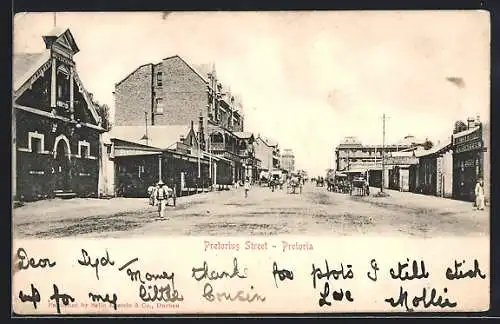 Pretorius Street - Pretoria
Dear Syd Many thank for photo I still stick
up for my little Cousin Love Mollie
Published by Sallo Epstein & Co., Durban